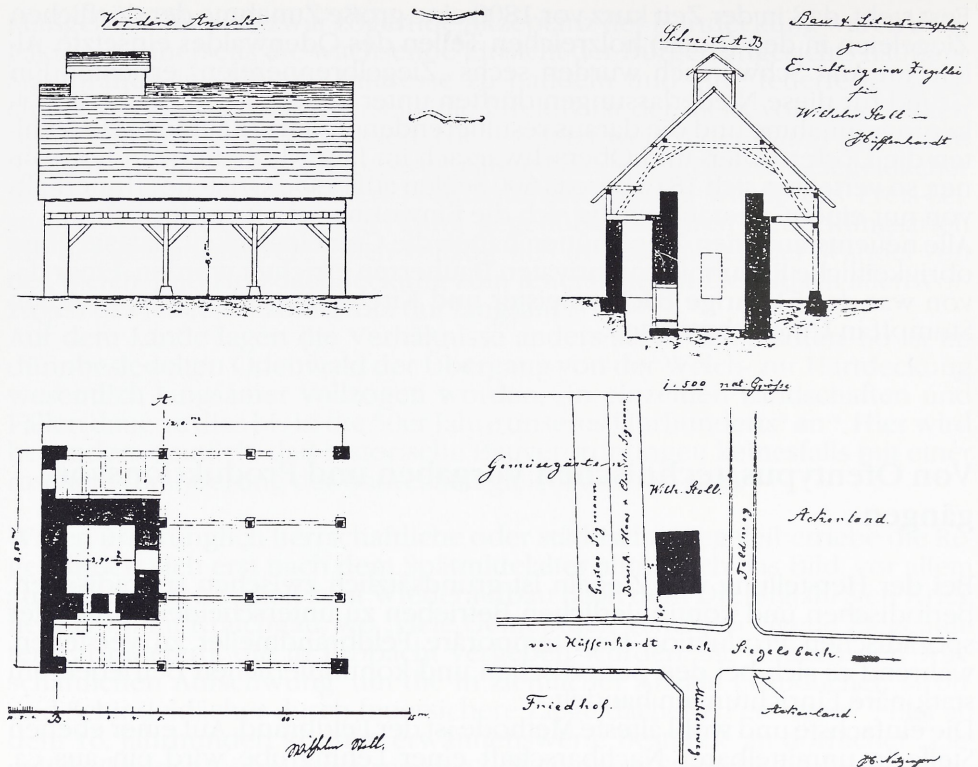 Vordere Ansicht.
Schnitt. A-B
Bau & Situationsplan
zur
Einrichtung einer Ziegelei
für
Wilhelm Stoll in
Hiffenhardt
A
12,0 m
B.
15 m
Wilhelm Stoll.
1:500 nat. Größe
Gemüsegärten
Gustav Sigmann.
Wilh. Stoll.
6,0
Feldweg
Ackerland.
von Hiffenhardt nach Siegelsbach.
Friedhof.
Ackerland.